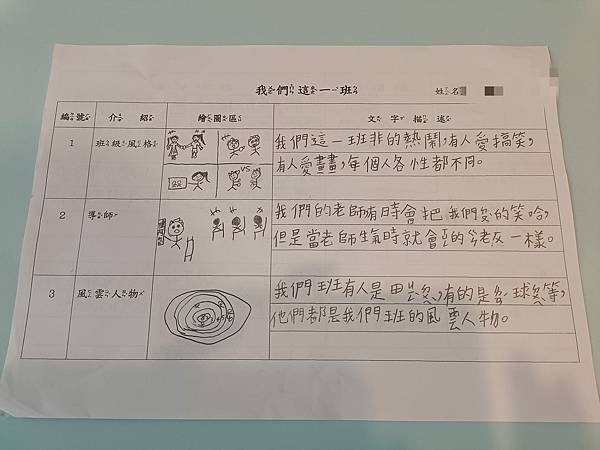 我們這一班
姓名
編號 介紹 繪圖區 文字描述
1 班級風格
我們這一班非的熱鬧,有人愛搞笑,
有人愛畫畫,每個人各性都不同。
VS
2 導師
我們的老師有時會把我們的笑哈,
但是當老師生氣時就會的老ㄈㄨ一樣。
3 風雲人物
我們班有人是田,有的是球等,
他們都是我們班的風雲人物。